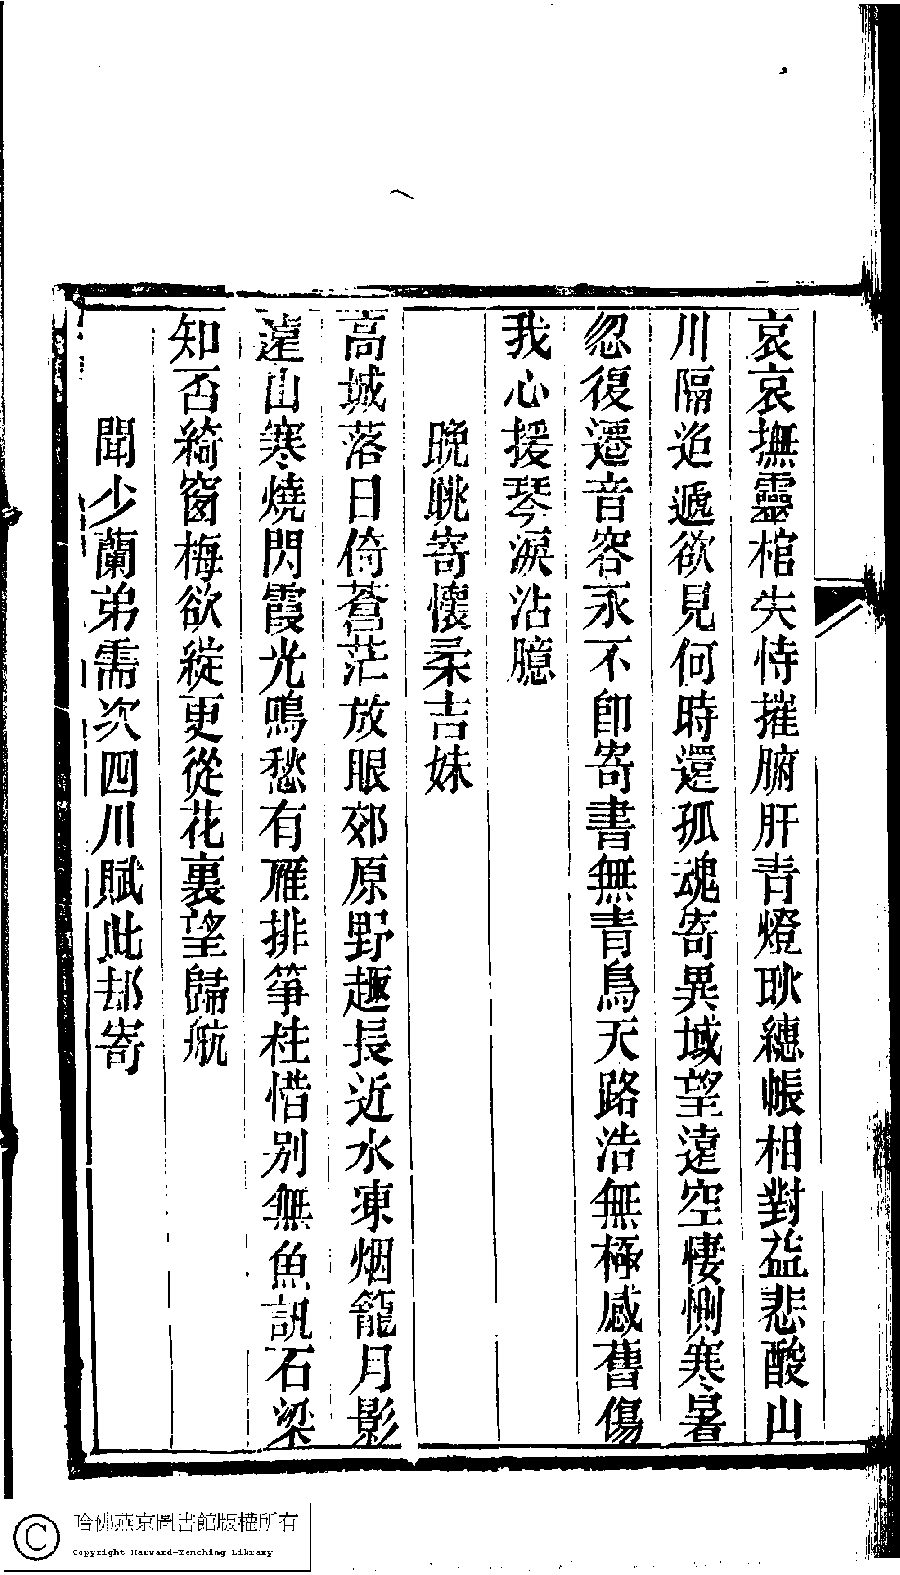 哀哀撫靈棺失恃摧腑肝青燈耿繐帳相對益悲酸山
川隔迢遞欲見何時還孤魂寄異域望遠空悽惻寒暑
忽復遷音容永不卽寄書無青鳥天路浩無極感舊傷
我心援琴淚沾臆
晚眺寄懷柔吉妹
高城落日倚蒼茫放眼郊原野趣長近水凍烟籠月影
遠山寒燒閃霞光鳴愁有雁排箏柱惜別無魚訊石梁
知否綺窗梅欲綻更從花裏望歸航
聞少蘭弟需次四川賦此却寄
哈佛燕京圖書館版權所有
Copyright Harvard-Yenching Library